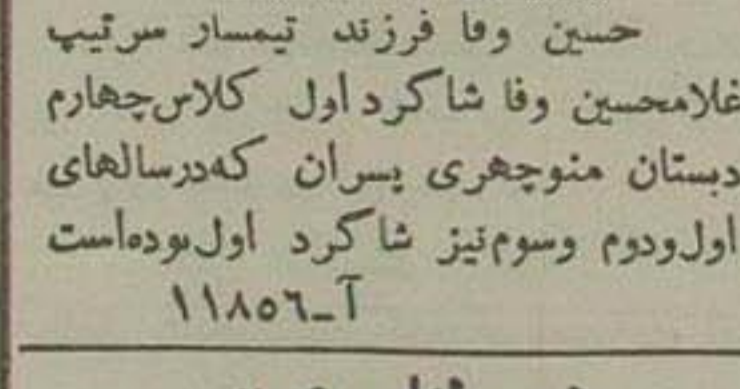 حسین وفا فرزند تیمسار سرتیپ
غلامحسین وفا شاگرد اول کلاس چهارم
دبستان منوچهری پسران که‌درسالهای
اول‌ودوم وسوم‌نیز شاگرد اول‌بوده‌است
آ-۱۱۸۵۶